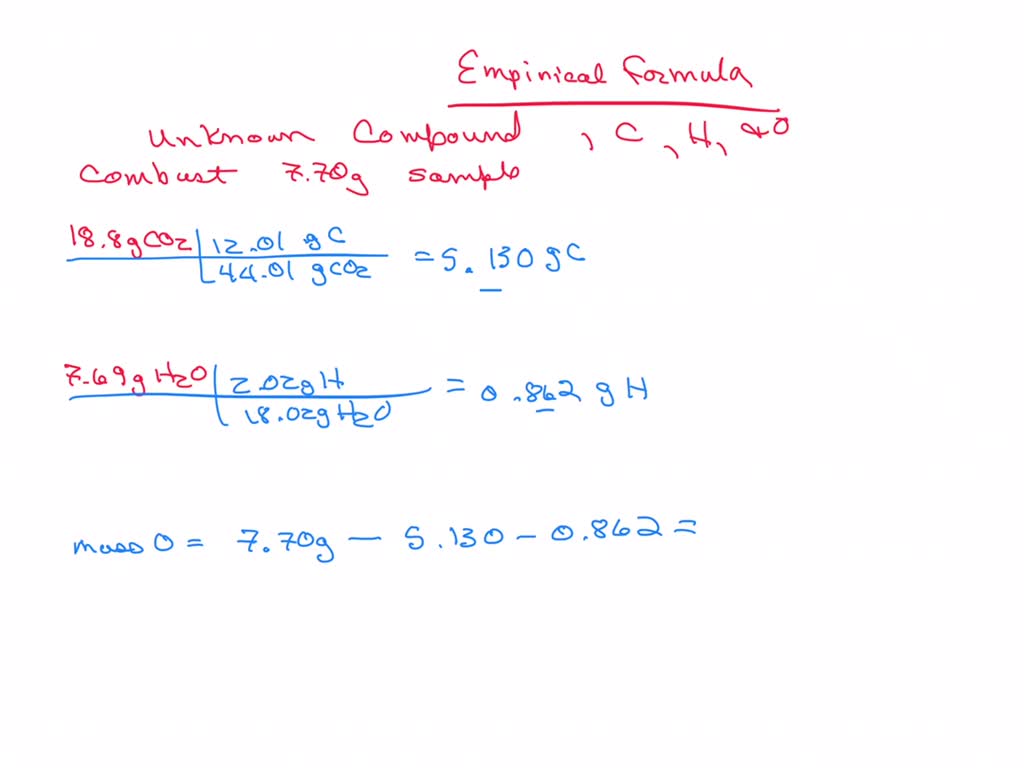 Empirical Formula
Unknown Compound , C, H, & O
Combust 7.70g sample
18.8gCO2 | 12.01 gC
44.01 gCO2
= 5.130 gC
7.69g H2O | 2.02gH
18.02g H2O
= 0.862 g H
mass O = 7.70g - 5.130 - 0.862 =